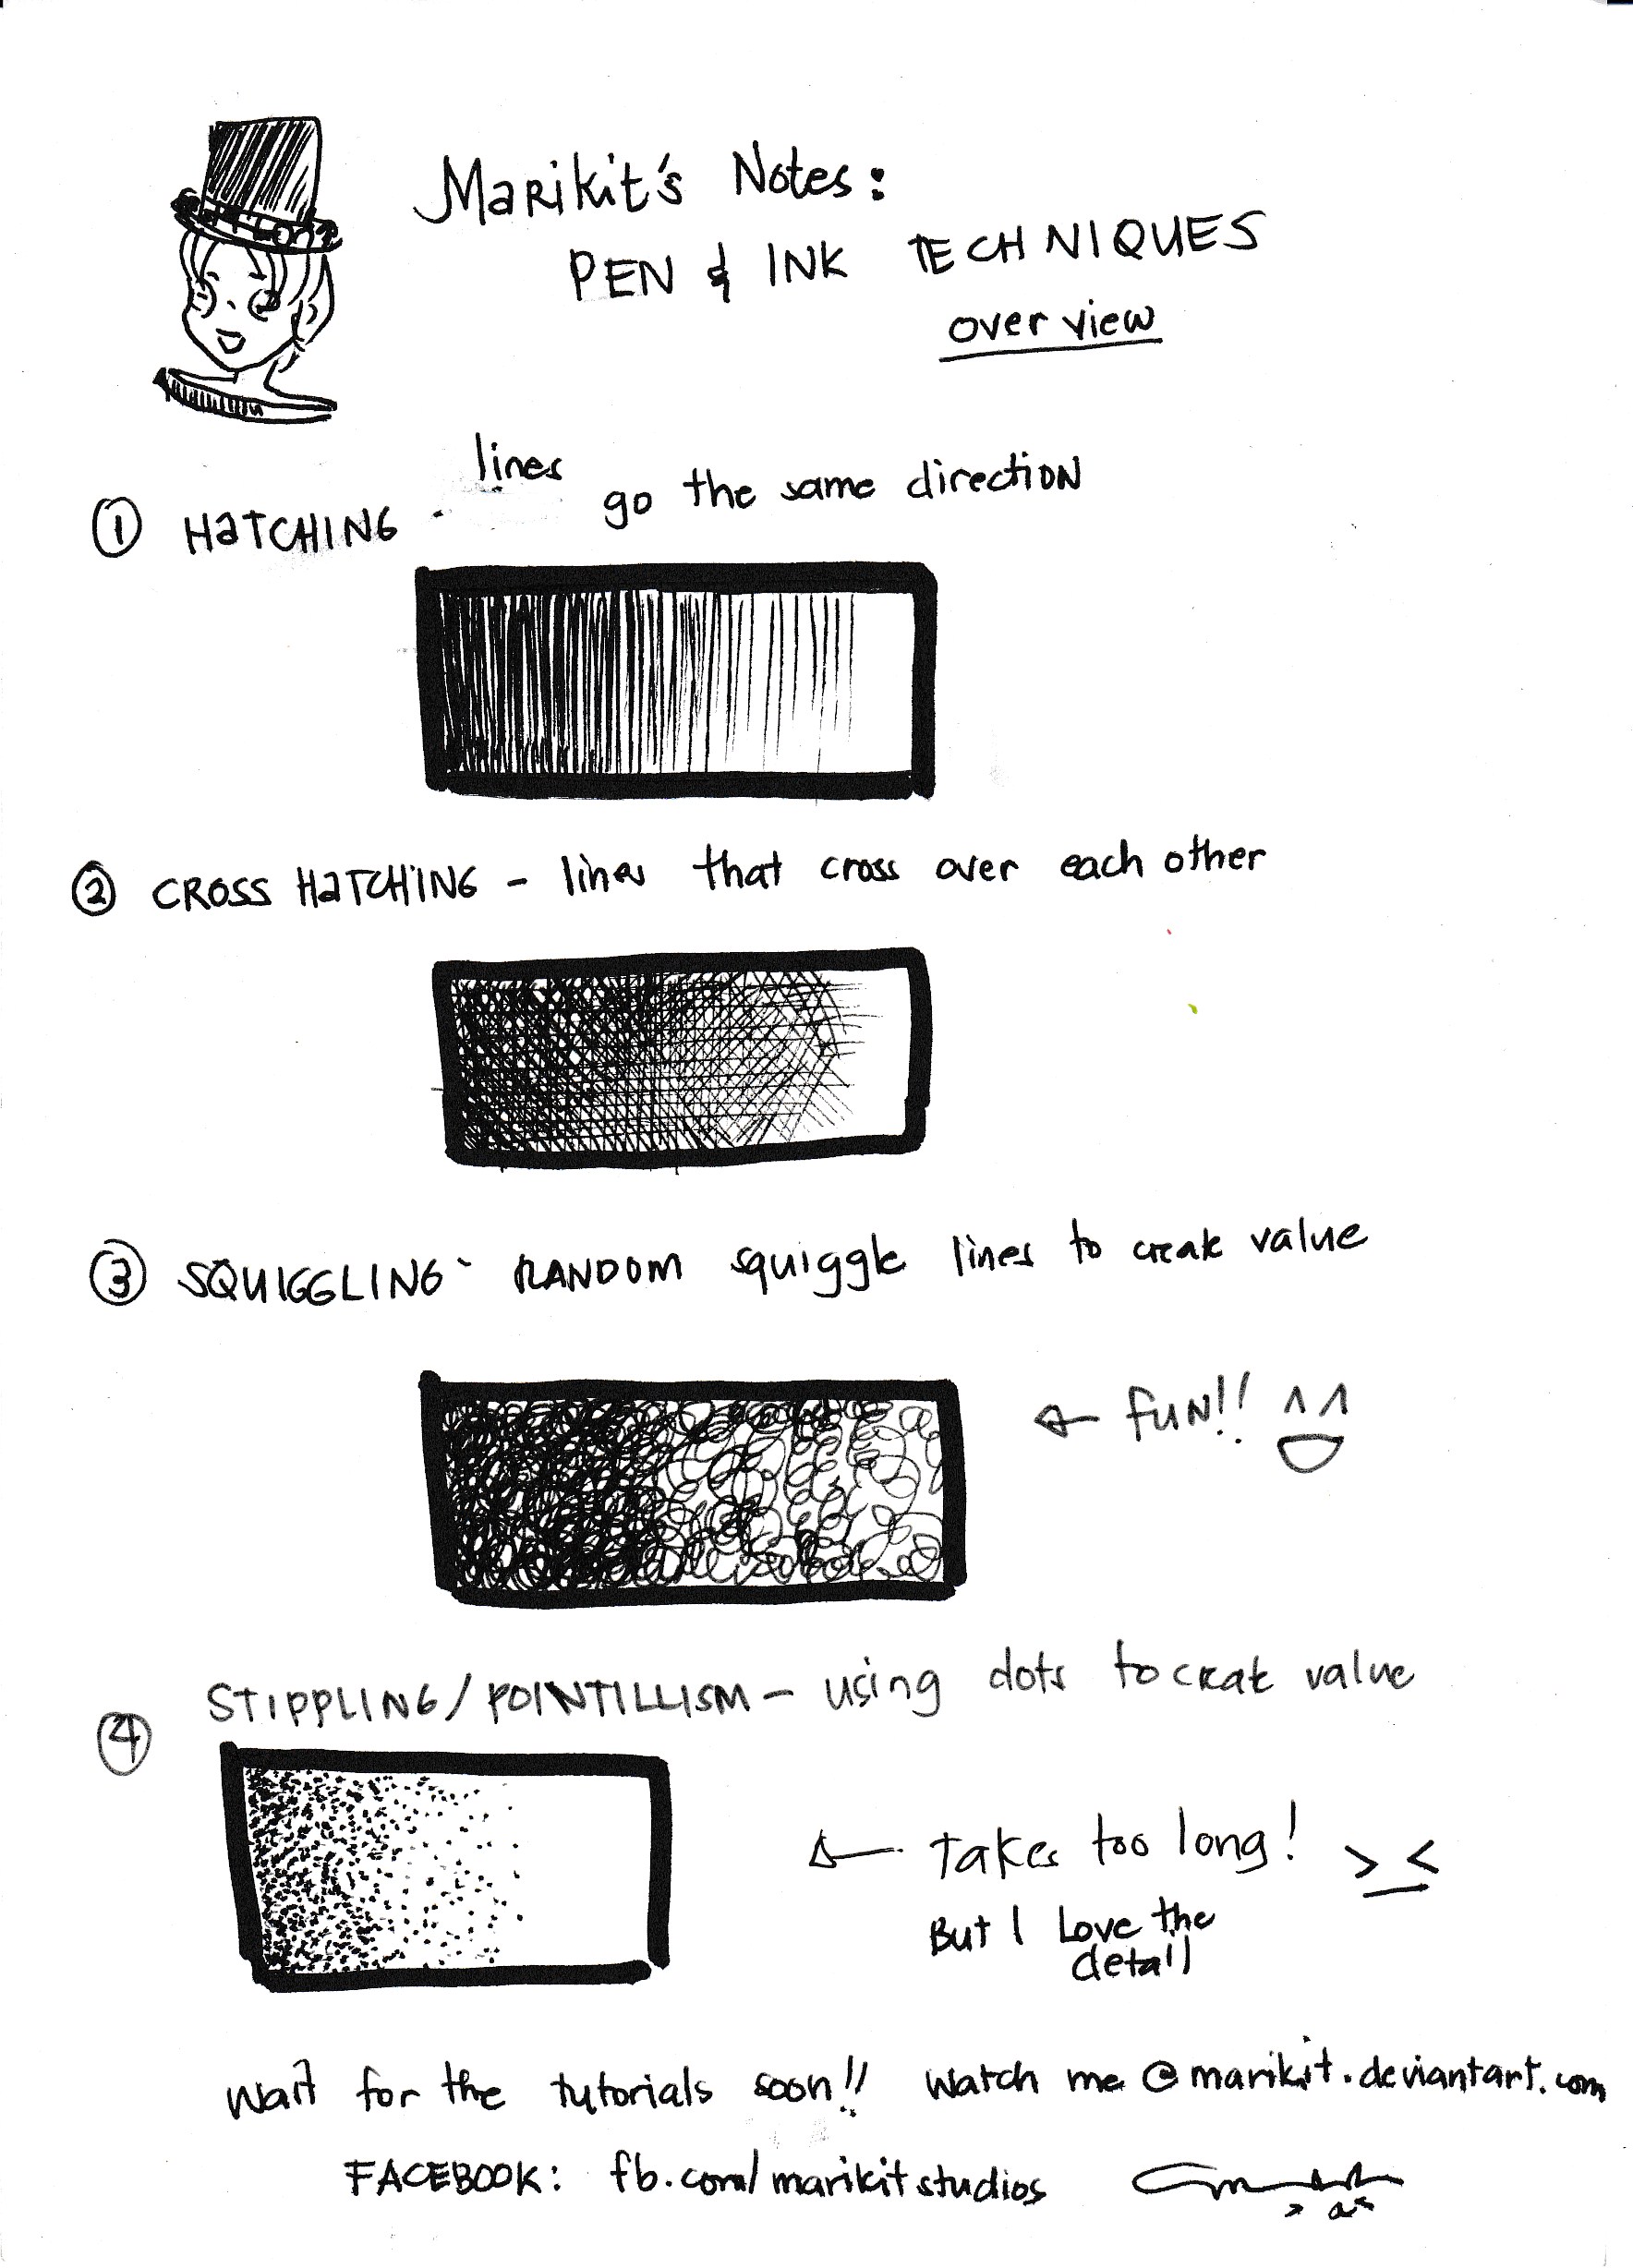 Marikit's Notes:
PEN & INK TECHNIQUES
over view
① HATCHING - lines go the same direction
② CROSS HATCHING - lines that cross over each other
③ SQUIGGLING - RANDOM squiggle lines to create value
← fun!! ^^
④ STIPPLING/POINTILLISM - using dots to create value
← Takes too long! >_<
But I Love the
detail
Wait for the tutorials soon!! Watch me @marikit.deviantart.com
FACEBOOK: fb.com/marikitstudios